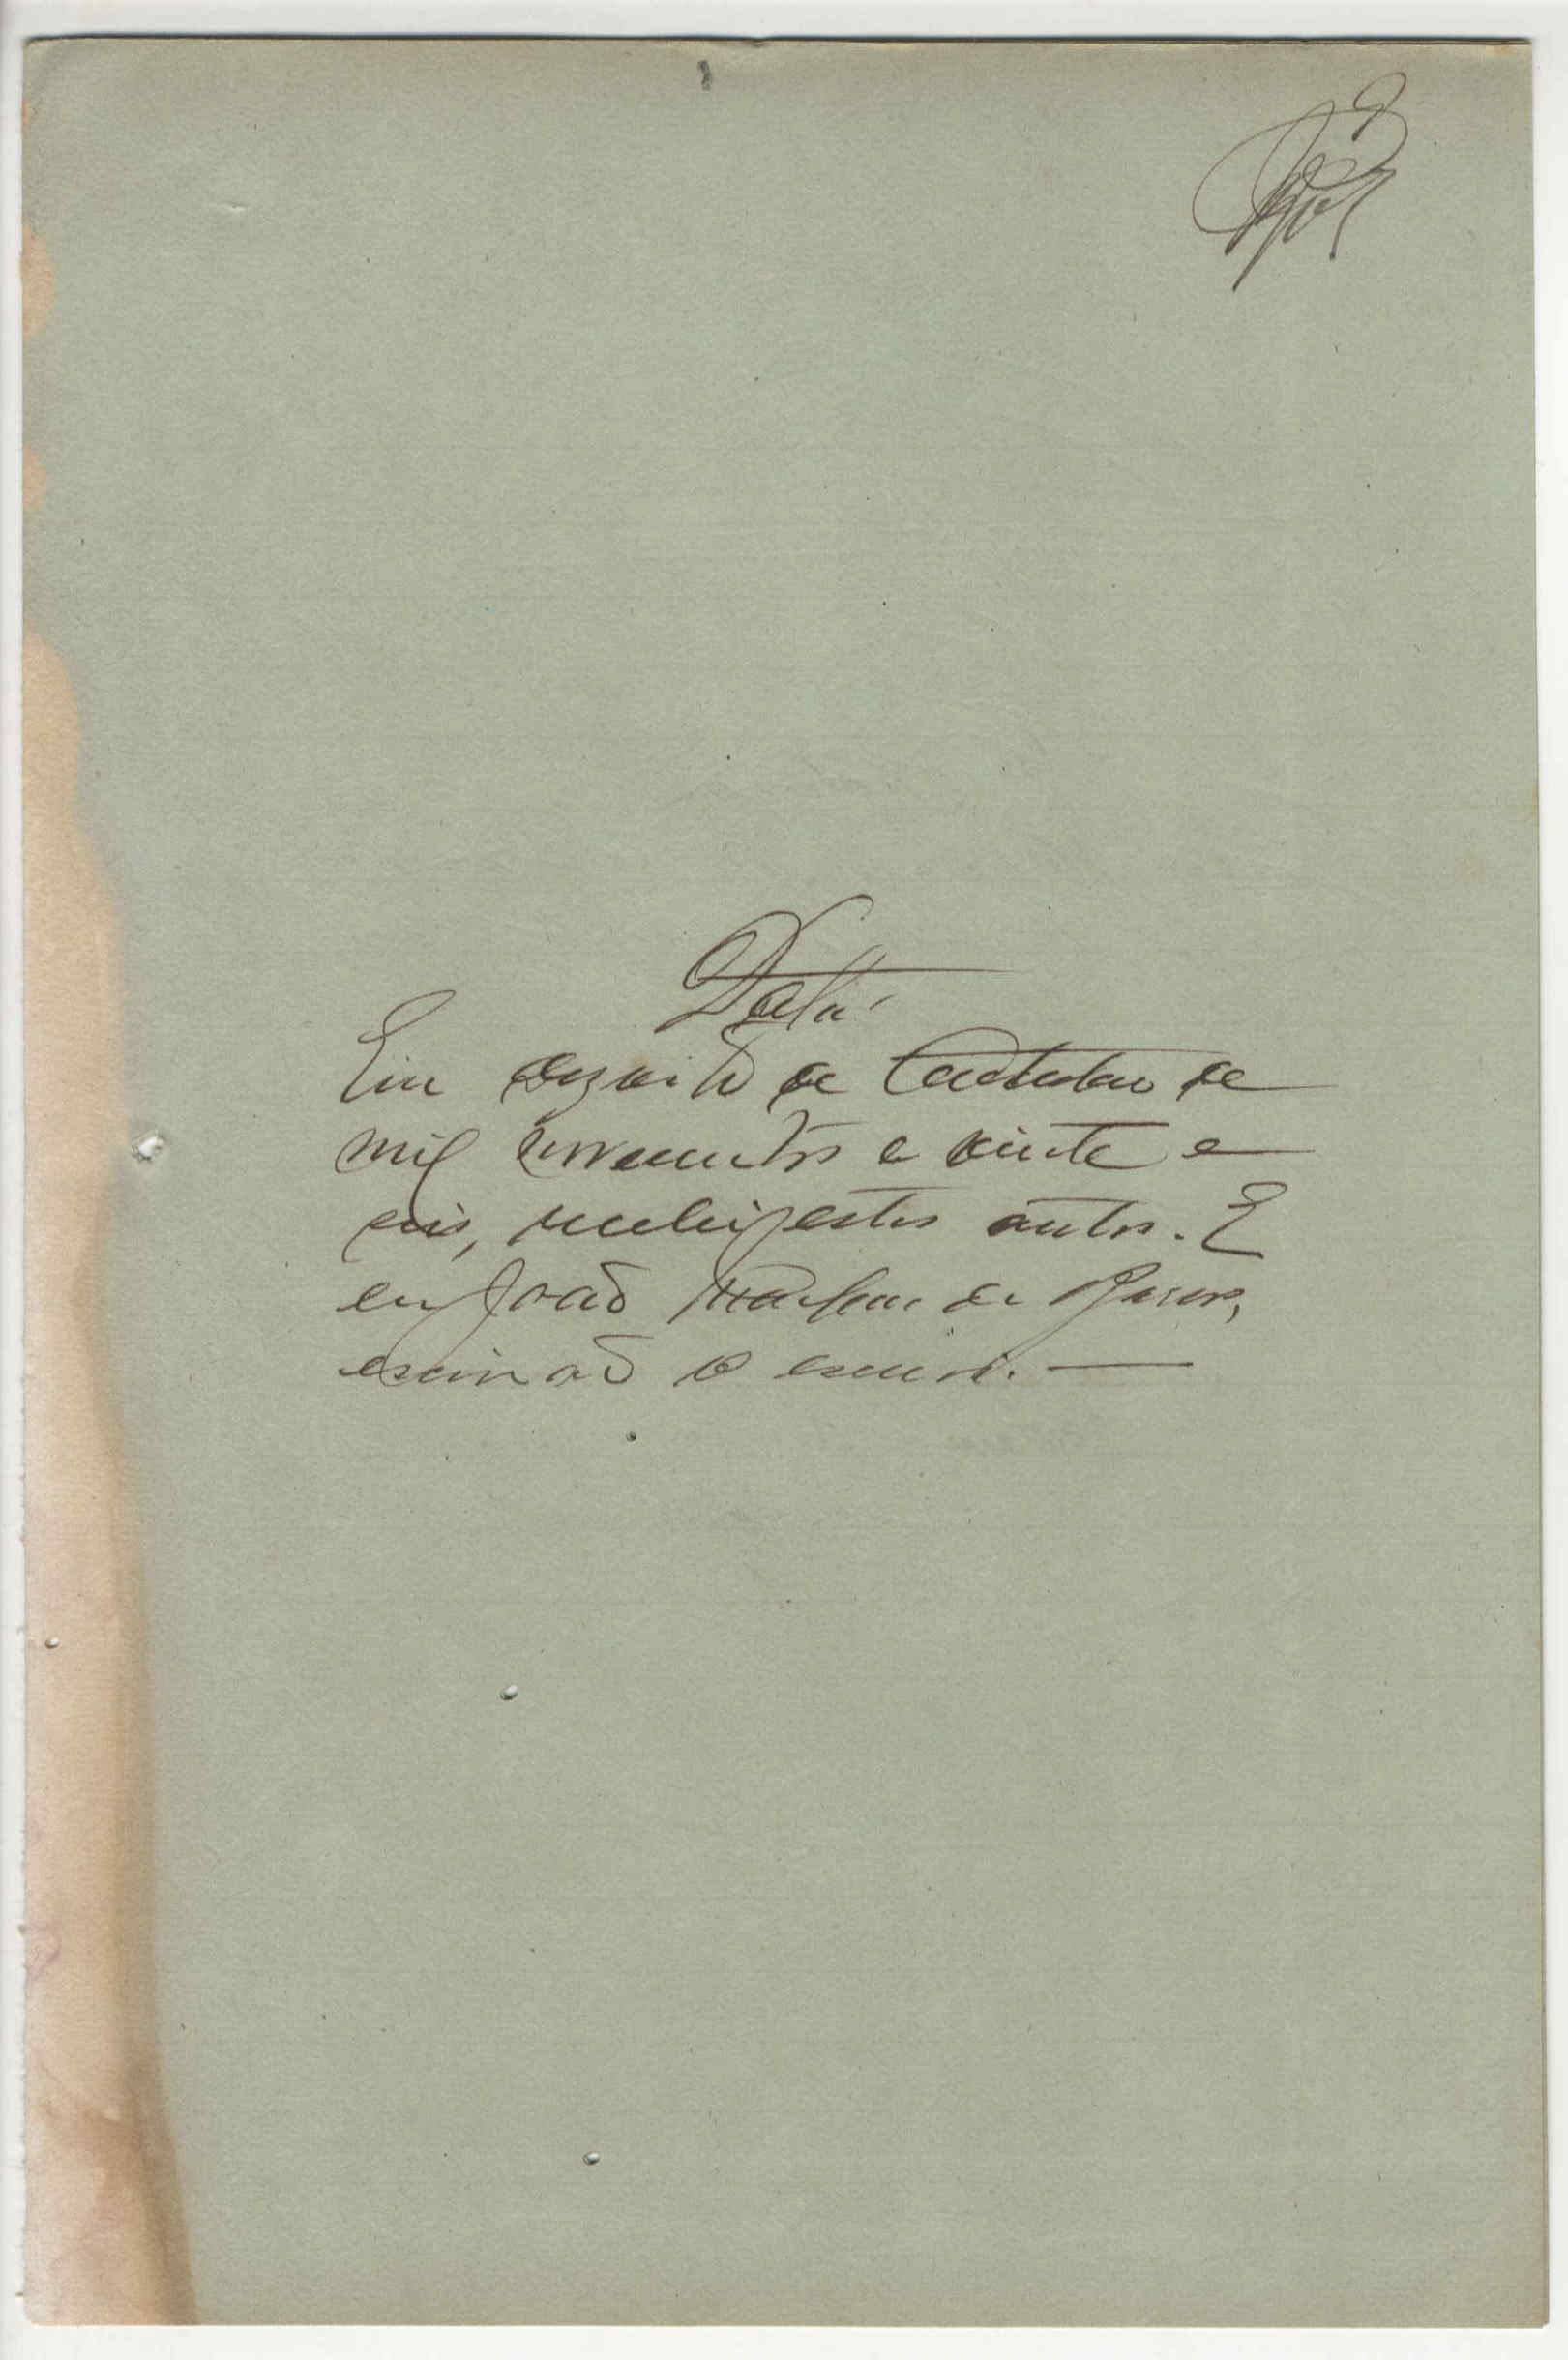 Data
Em dezoito de Outubro de
mil novecentos e vinte e
seis, recebi estes autos. E
eu João de Barros,
escrivão o escrevi.